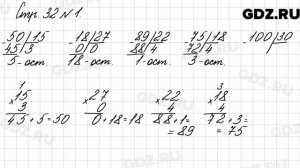 GDZ.RU
Стр. 32 N 1.
50|15 -18|27 -89|22 -75|18 -100|30
45|3 0|0 88|4 72|4
5-ост. 18-ост. 1-ост. 3-ост.
1 3
×15 ×27 ×22 ×18
3 0 4 4
45+5=50 0+18=18 88+1= 72+3=
=89 =75
GDZ.RU